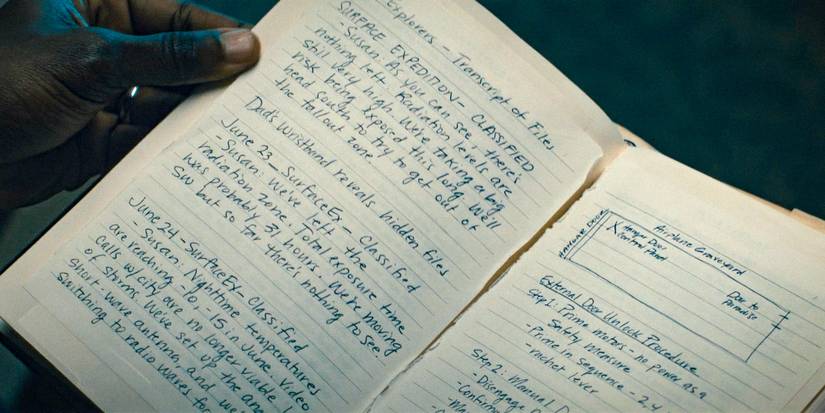 Explorers - Transcript of Files
SURFACE EXPEDITION - CLASSIFIED
- Susan: As you can see - there's
nothing left. Radiation levels are
still very high. We're taking a big
risk being exposed this long. We'll
head south to try to get out of
the fallout zone.
Dad's Wristband reveals hidden files
June 23 - SurfaceEx - Classified
- Susan: We've left the
radiation zone. Total exposure time
was probably 31 hours. We're moving
SW but so far there's nothing to see.
June 24 - SurfaceEx - Classified
- Susan: Nighttime temperatures
are reaching -10 - -15 in June. Video
calls w/city are no longer viable
of storms. We've set up the
short-wave antenna, and
switching to radio waves for
Airplane Graveyard
X Hangar Door
Control Panel
Door to
Paradise
External Door Unlock Procedure
Step 1: Prime motors - no power as a
Safety measure
- Prime in sequence - 2,4
- ratchet lever
Step 2: Manual
- Disengage
- Confirm